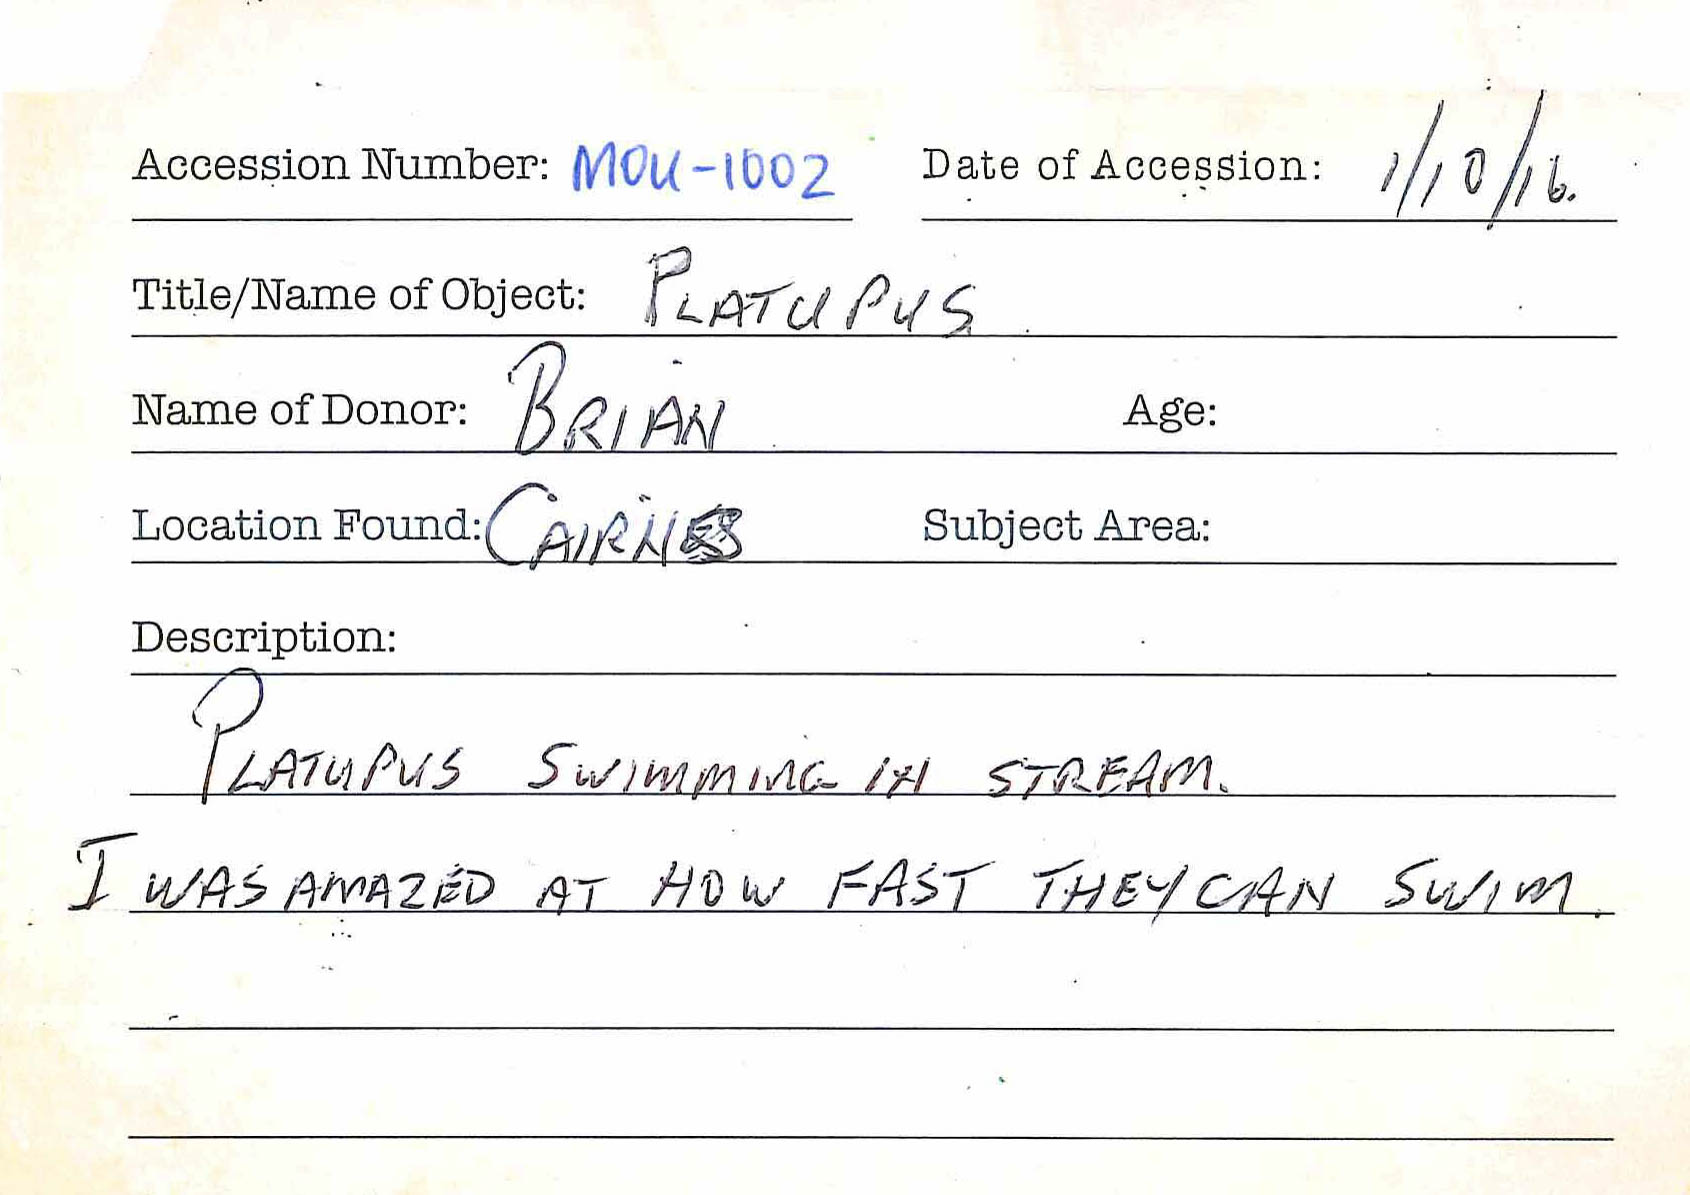 Accession Number: MOU-1002 Date of Accession: 1/10/16.
Title/Name of Object: PLATUPUS
Name of Donor: BRIAN Age:
Location Found: CAIRNS Subject Area:
Description:
PLATUPUS SWIMMING IN STREAM.
I WAS AMAZED AT HOW FAST THEY CAN SWIM.